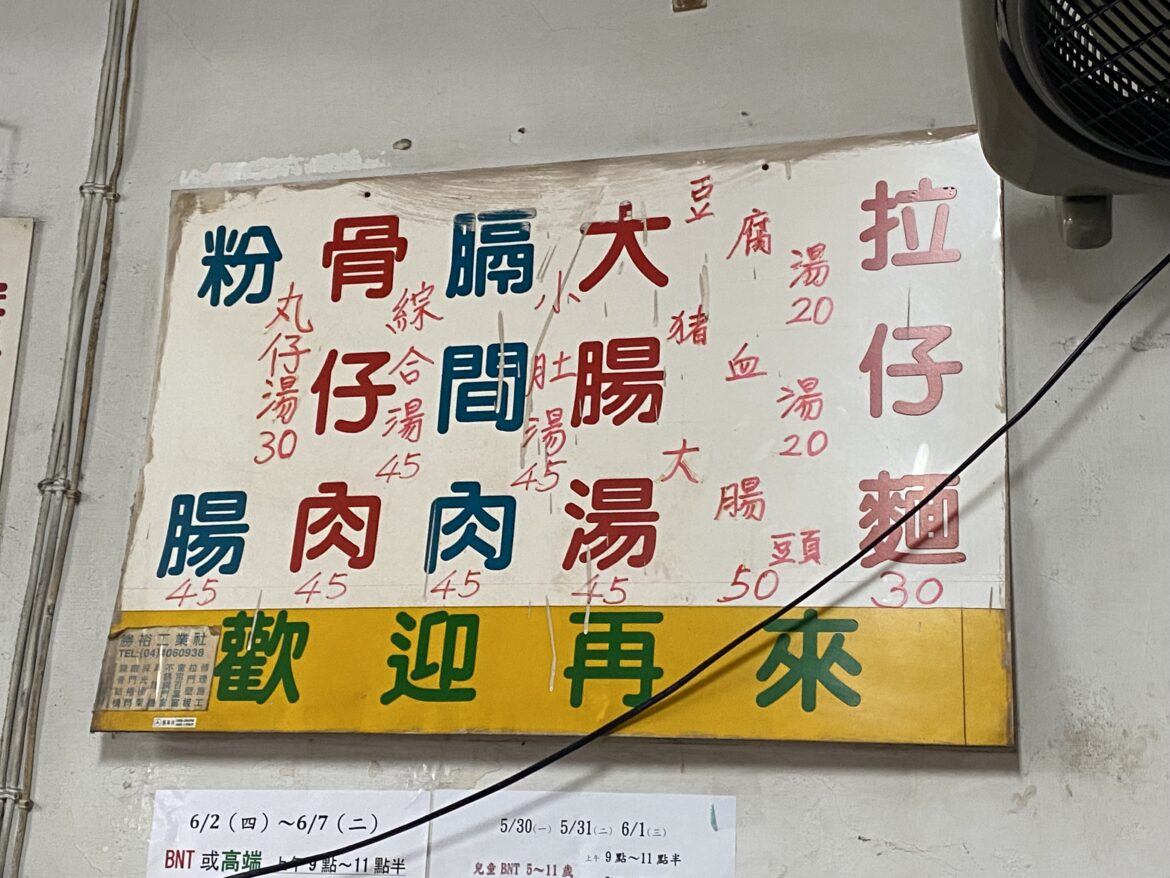 拉仔麵
30
豆腐湯
20
猪血湯
20
大腸頭
50
大腸湯
45
小肚湯
45
膈間肉
45
綜合湯
45
骨仔肉
45
丸仔湯
30
粉腸
45
歡迎再來
勝裕工業社
TEL:(04)4060938
6/2（四）～6/7（二）
BNT 或高端 上午 9 點～11 點半
5/30(一) 5/31(二) 6/1(三)
兒童 BNT 5～11 歲
上午 9 點～11 點半